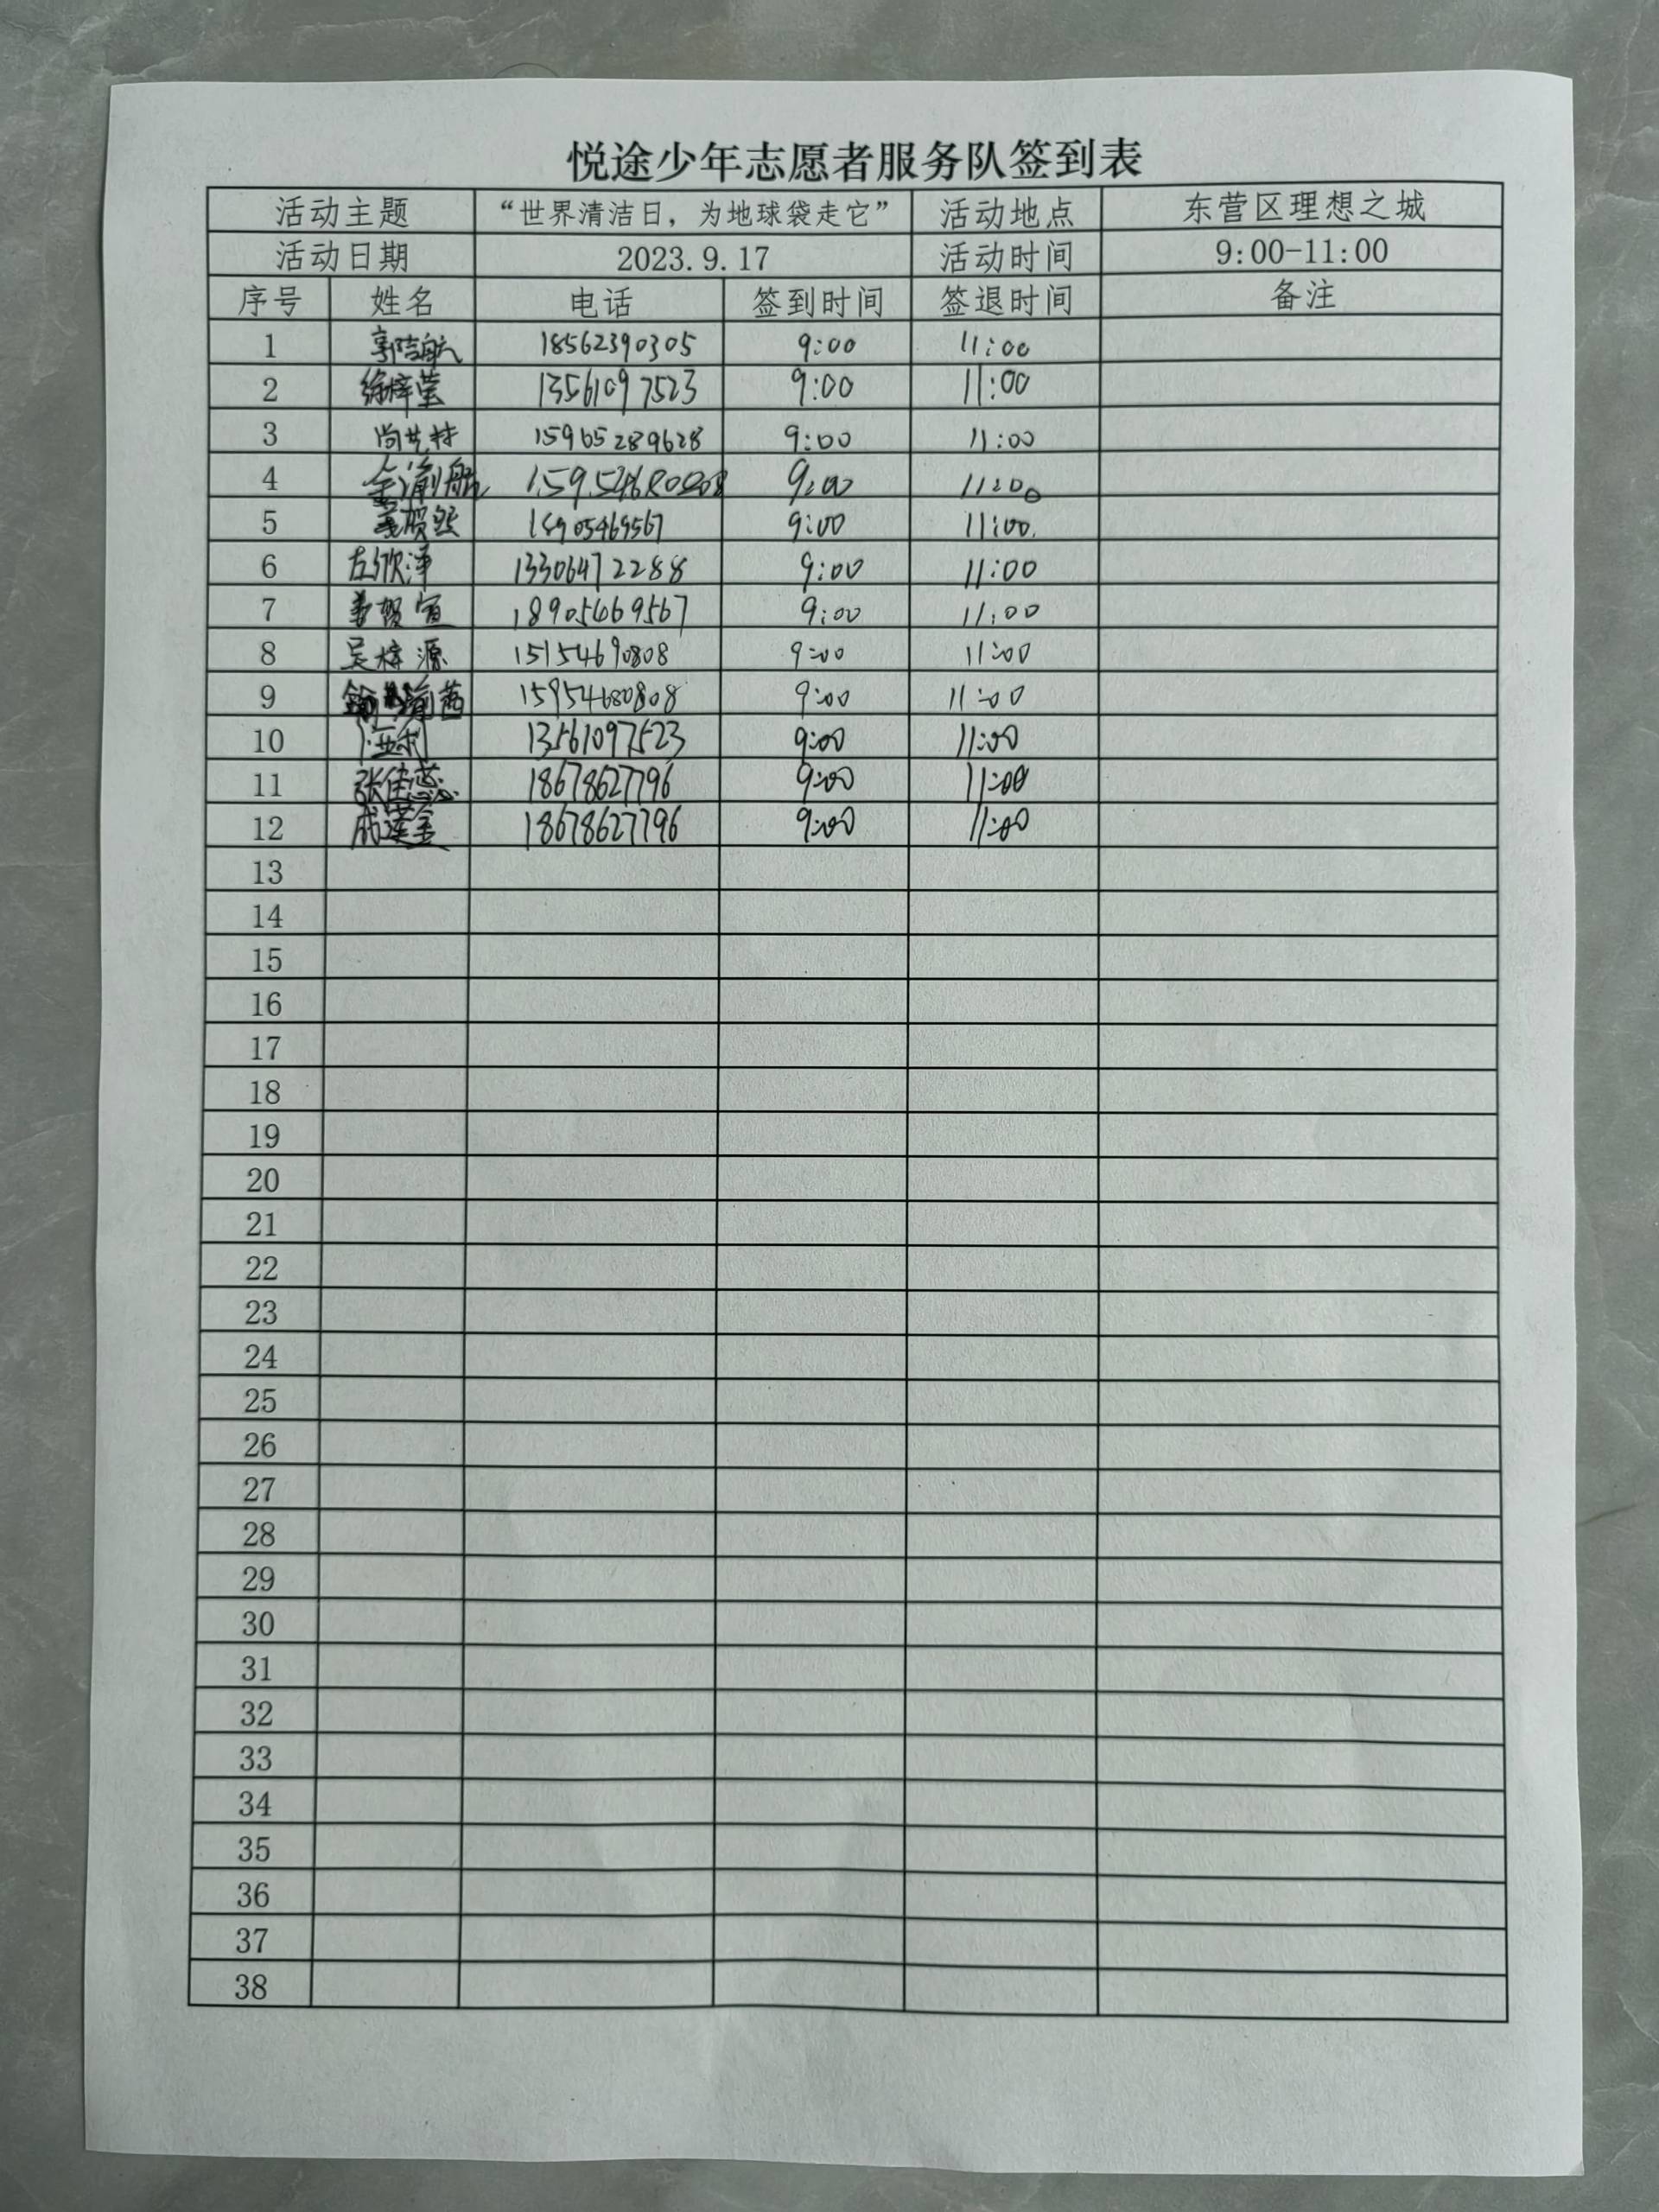 悦途少年志愿者服务队签到表
活动主题 “世界清洁日，为地球袋走它” 活动地点 东营区理想之城
活动日期 2023.9.17 活动时间 9:00-11:00
序号 姓名 电话 签到时间 签退时间 备注
1 18562390305 9:00 11:00
2 徐梓莹 13561097523 9:00 11:00
3 15965289628 9:00 11:00
4 9:00 11:00
5 9:00 11:00
6 左欣泽 13306472288 9:00 11:00
7 姜贺宣 18905469567 9:00 11:00
8 吴梓源 15154690808 9:00 11:00
9 15954680808 9:00 11:00
10 13561097523 9:00 11:00
11 张佳蕊 18678627796 9:00 11:00
12 成莲金 18678627796 9:00 11:00
13
14
15
16
17
18
19
20
21
22
23
24
25
26
27
28
29
30
31
32
33
34
35
36
37
38